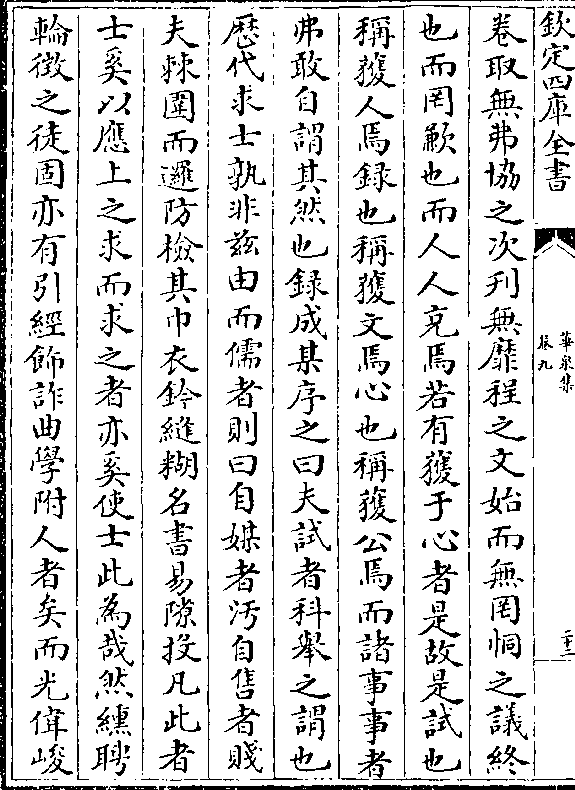 欽定四庫全書
華泉集
卷九
二十二
卷取無弗協之次刋無靡程之文始而無罔恫之議終
也而罔歉也而人人克焉若有獲于心者是故是試也
稱獲人焉録也稱獲文焉心也稱獲公焉而諸事事者
弗敢自謂其然也録成某序之曰夫試者科舉之謂也
歴代求士孰非兹由而儒者則曰自媒者汚自售者賤
夫棘圍而邏防檢其巾衣鈐縫糊名書易隙投凡此者
士奚以應上之求而求之者亦奚使士此為哉然纁聘
輪徴之徒固亦有引經飾詐曲學附人者矣而光偉峻